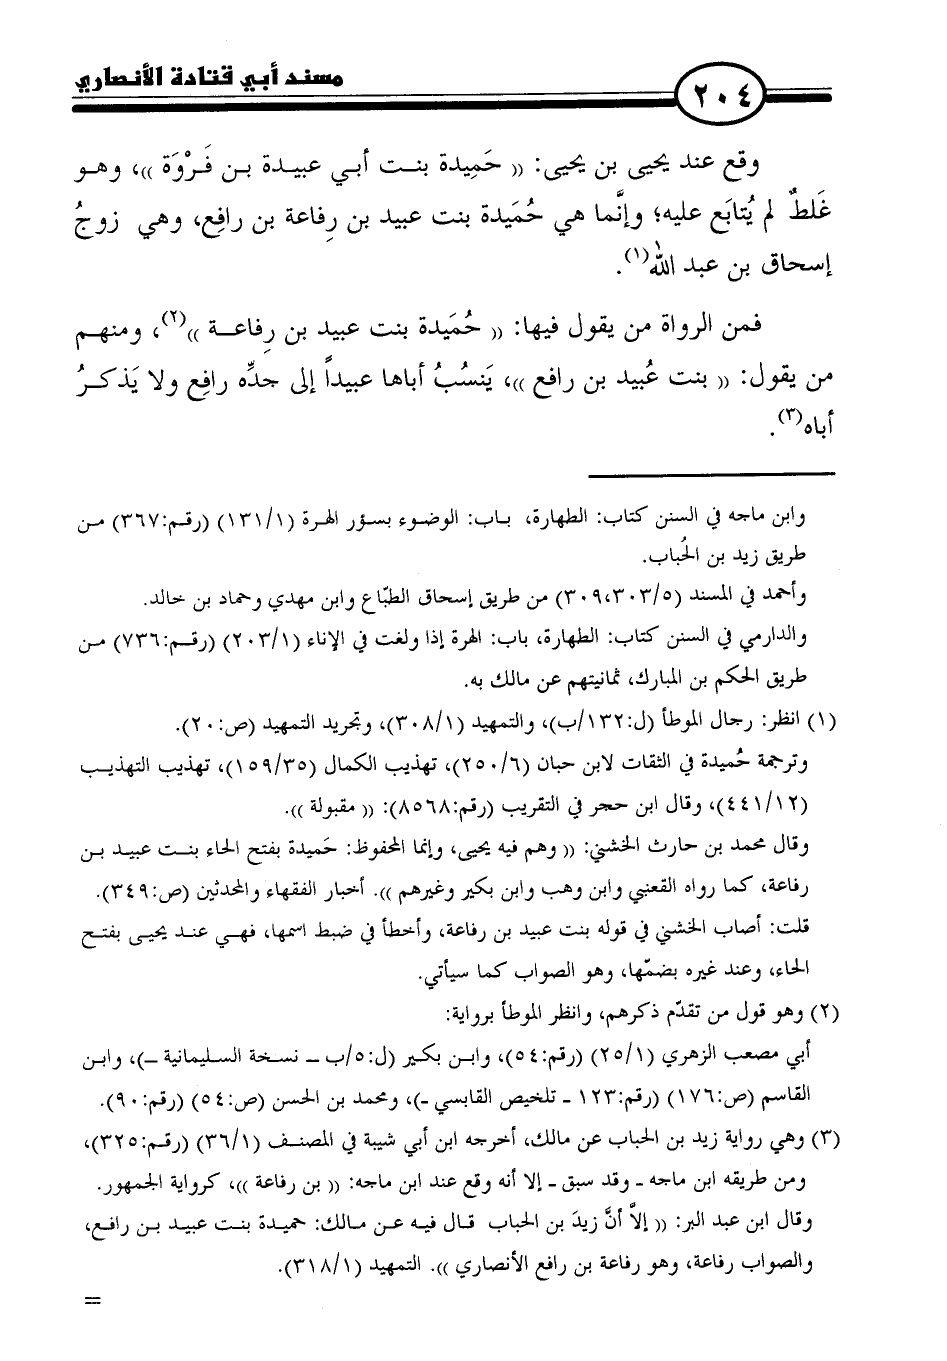 مسند أبي قتادة الأنصاري ٢٠٤
وقع عند يحيى بن يحيى: « حَمِيدة بنت أبي عبيدة بن فَرْوَة »، وهو
غَلطٌ لم يُتابَع عليه؛ وإنَّما هي حُمَيدة بنت عبيد بن رِفاعة بن رافِع، وهي زوجُ
إسحاق بن عبد الله(١).
فمن الرواة من يقول فيها: « حُمَيدة بنت عبيد بن رِفاعة »(٢)، ومنهم
من يقول: « بنت عُبيد بن رافع »، يَنسُبُ أباها عبيداً إلى جدِّه رافِع ولا يَذكرُ
أباه(٣).
وابن ماجه في السنن كتاب: الطهارة، باب: الوضوء بسؤر الهرة (١٣١/١) (رقم:٣٦٧) من
طريق زيد بن الحُباب.
وأحمد في المسند (٣٠٩،٣٠٣/٥) من طريق إسحاق الطبّاع وابن مهدي وحماد بن خالد.
والدارمي في السنن كتاب: الطهارة، باب: الهرة إذا ولغت في الإناء (٢٠٣/١) (رقم:٧٣٦) من
طريق الحكم بن المبارك، ثمانيتهم عن مالك به.
(١) انظر: رجال الموطأ (ل:١٣٢/ب)، والتمهيد (٣٠٨/١)، وتجريد التمهيد (ص:٢٠).
وترجمة حُميدة في الثقات لابن حبان (٢٥٠/٦)، تهذيب الكمال (١٥٩/٣٥)، تهذيب التهذيب
(٤٤١/١٢)، وقال ابن حجر في التقريب (رقم:٨٥٦٨): « مقبولة ».
وقال محمد بن حارث الخشني: « وهم فيه يحيى، وإنما المحفوظ: حَميدة بفتح الحاء بنت عبيد بن
رفاعة، كما رواه القعنبي وابن وهب وابن بكير وغيرهم ». أخبار الفقهاء والمحدثين (ص:٣٤٩).
قلت: أصاب الخشني في قوله بنت عبيد بن رفاعة، وأخطأ في ضبط اسمها، فهي عند يحيى بفتح
الحاء، وعند غيره بضمّها، وهو الصواب كما سيأتي.
(٢) وهو قول من تقدّم ذكرهم، وانظر الموطأ برواية:
أبي مصعب الزهري (٢٥/١) (رقم:٥٤)، وابن بكير (ل:٥/ب ـ نسخة السليمانية ـ)، وابن
القاسم (ص:١٧٦) (رقم:١٢٣ ـ تلخيص القابسي ـ)، ومحمد بن الحسن (ص:٥٤) (رقم:٩٠).
(٣) وهي رواية زيد بن الحباب عن مالك، أخرجه ابن أبي شيبة في المصنف (٣٦/١) (رقم:٣٢٥)،
ومن طريقه ابن ماجه ـ وقد سبق ـ إلا أنه وقع عند ابن ماجه: « بن رفاعة »، كرواية الجمهور.
وقال ابن عبد البر: « إلاَّ أنَّ زيدَ بن الحباب قال فيه عن مالك: حميدة بنت عبيد بن رافع،
والصواب رفاعة، وهو رفاعة بن رافع الأنصاري ». التمهيد (٣١٨/١).
=